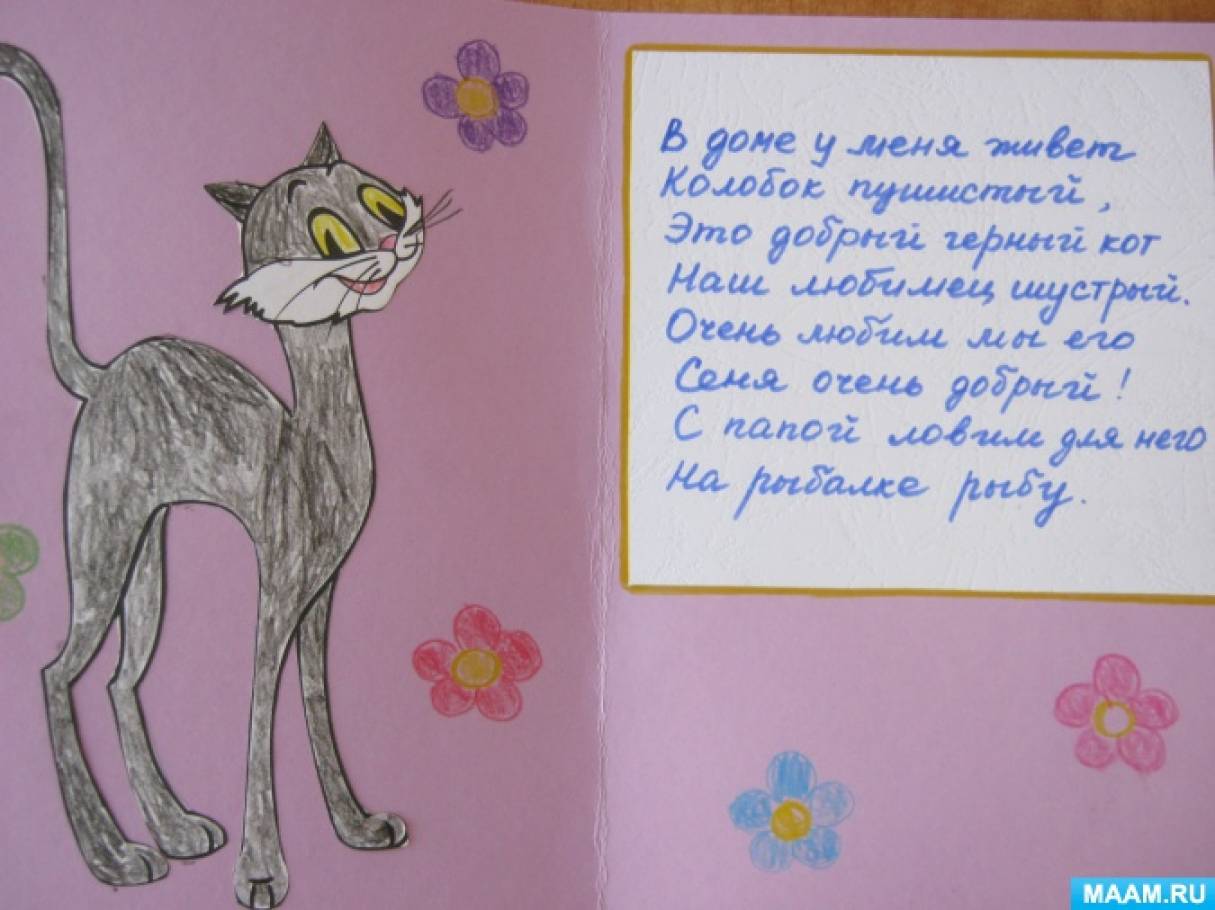 В доме у меня живет
Колобок пушистый,
Это добрый черный кот
Наш любимец шустрый.
Очень любим мы его
Сеня очень добрый!
С папой ловим для него
На рыбалке рыбу.
MAAM.RU